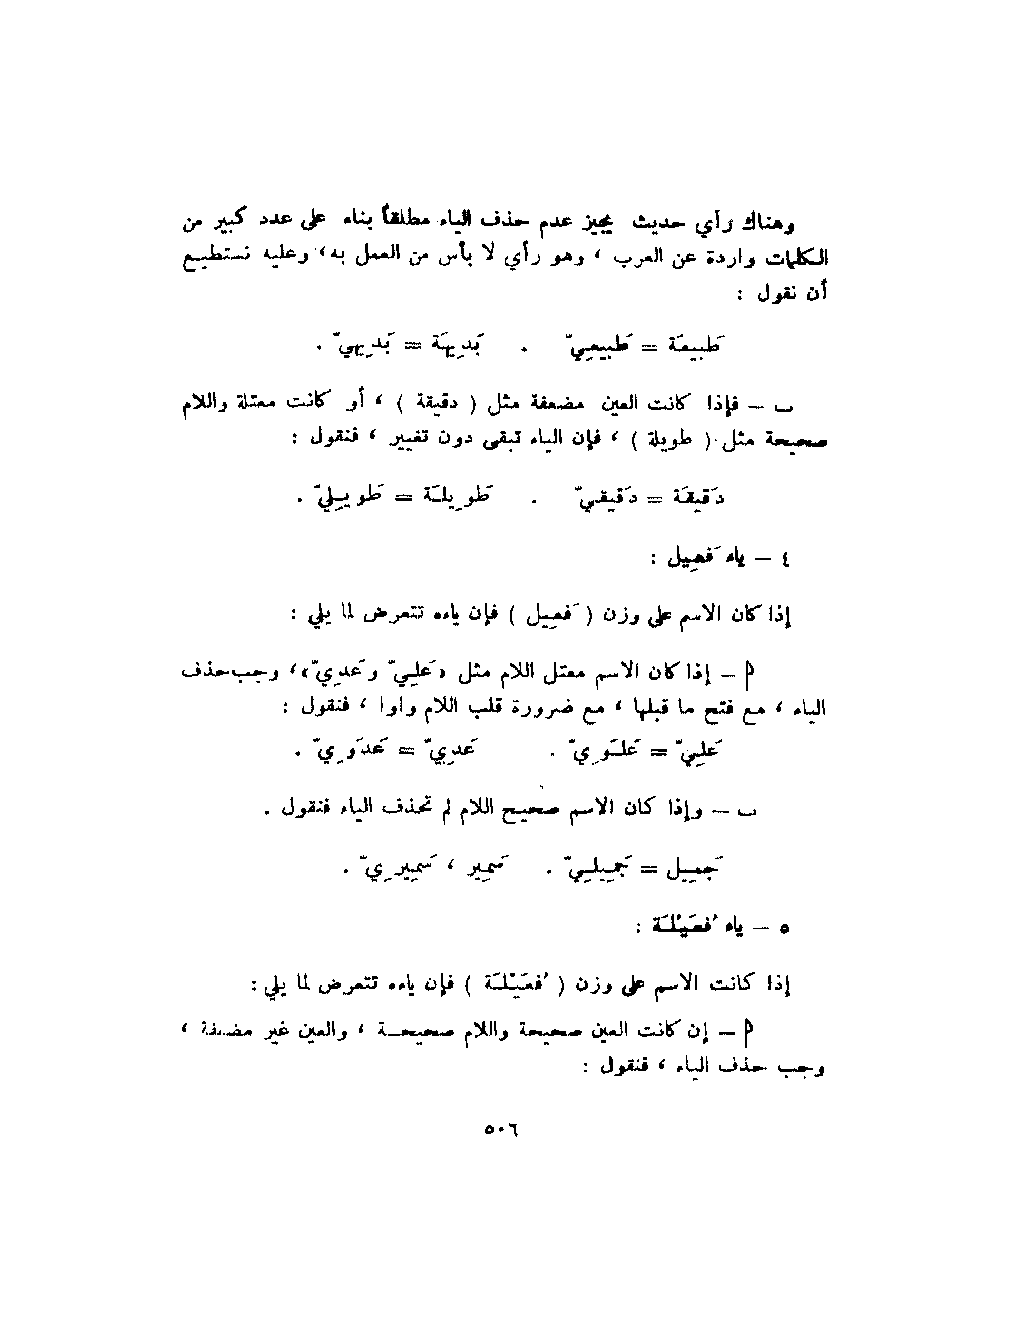 وهناك رأي حديث يجيز عدم حذف الياء مطلقاً بناء على عدد كبير من
الكلمات واردة عن العرب ، وهو رأي لا بأس من العمل به ، وعليه نستطيـع
أن نقول :
طَبيعَة = طَبيعيّ . بَديهَة = بَديهيّ .
ب – فإذا كانت العين مضعفة مثل ( دقيقة ) ، أو كانت معتلة واللام
صحيحة مثل ( طويلة ) ، فإن الياء تبقى دون تغيير ، فنقول :
دَقيقَة = دَقيقيّ . طَويِلَة = طَويِليّ .
٤ – ياء فَعِيل :
إذا كان الاسم على وزن ( فَعِيل ) فإن ياءه تتعرض لما يلي :
أ – إذا كان الاسم معتل اللام مثل «عَلِيّ وعَدِيّ» ، وجب حذف
الياء ، مع فتح ما قبلها ، مع ضرورة قلب اللام واوا ، فنقول :
عَلِيّ = عَلَوِيّ . عَدِيّ = عَدَوِيّ .
ب – وإذا كان الاسم صحيح اللام لم تحذف الياء فنقول .
جَمِيل = جَمِيلِيّ . سَمِير ، سَمِيرِيّ .
٥ – ياء فُعَيْلَة :
إذا كانت الاسم على وزن ( فُعَيْلَة ) فإن ياءه تتعرض لما يلي :
أ – إن كانت العين صحيحة واللام صحيحـة ، والعين غير مضعفة ،
وجب حذف الياء ، فنقول :
٥٠٦